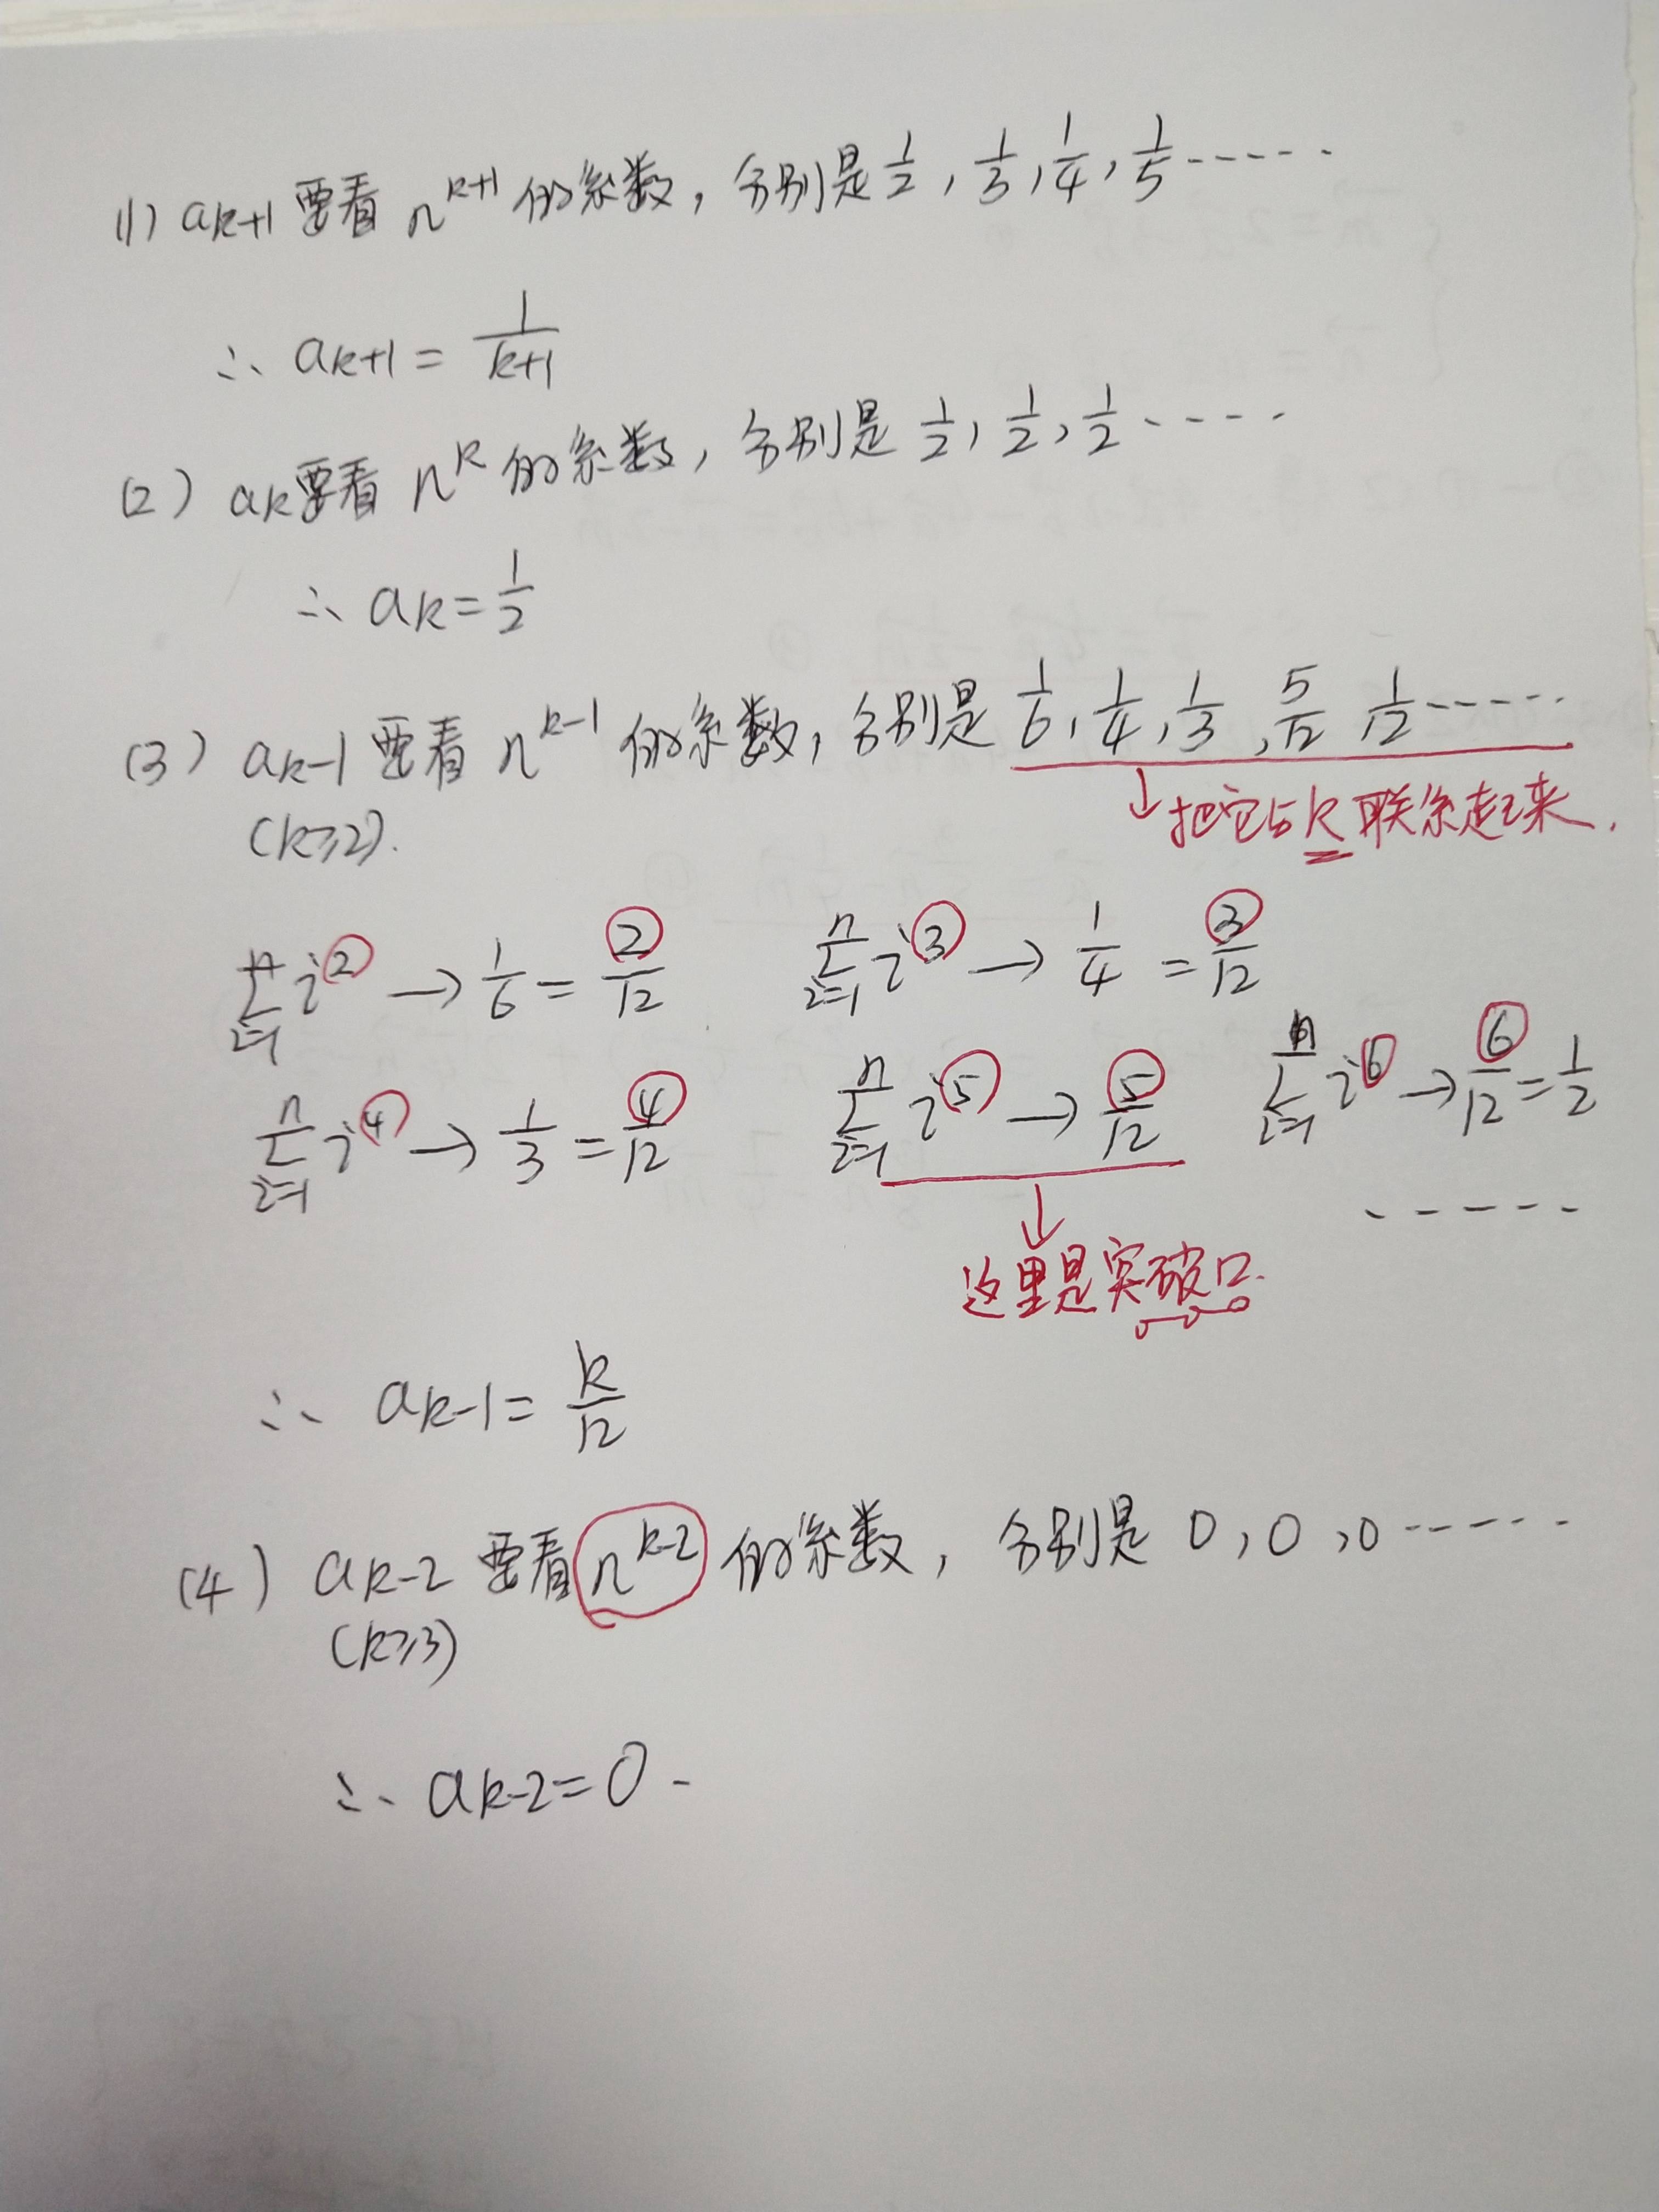 (1) ak+1要看 n^{k+1} 的系数, 分别是 1/2, 1/3, 1/4, 1/5 ······
∴ ak+1 = 1/(k+1)
(2) ak要看 n^k 的系数, 分别是 1/2, 1/2, 1/2 ·····
∴ ak = 1/2
(3) ak-1 要看 n^{k-1} 的系数, 分别是 1/6, 1/4, 1/3, 5/12 1/12 ······
(k≥2).
↓把它与k联系起来.
∑_{i=1}^{n} i^2 → 1/6 = 2/12 ∑_{i=1}^{n} i^3 → 1/4 = 3/12
∑_{i=1}^{n} i^4 → 1/3 = 4/12 ∑_{i=1}^{n} i^5 → 5/12 ∑_{i=1}^{n} i^6 → 6/12 = 1/2
······
↓
这里是突破口.
∴ ak-1 = k/12
(4) ak-2 要看 n^{k-2} 的系数, 分别是 0, 0, 0 ······
(k≥3)
∴ ak-2 = 0.